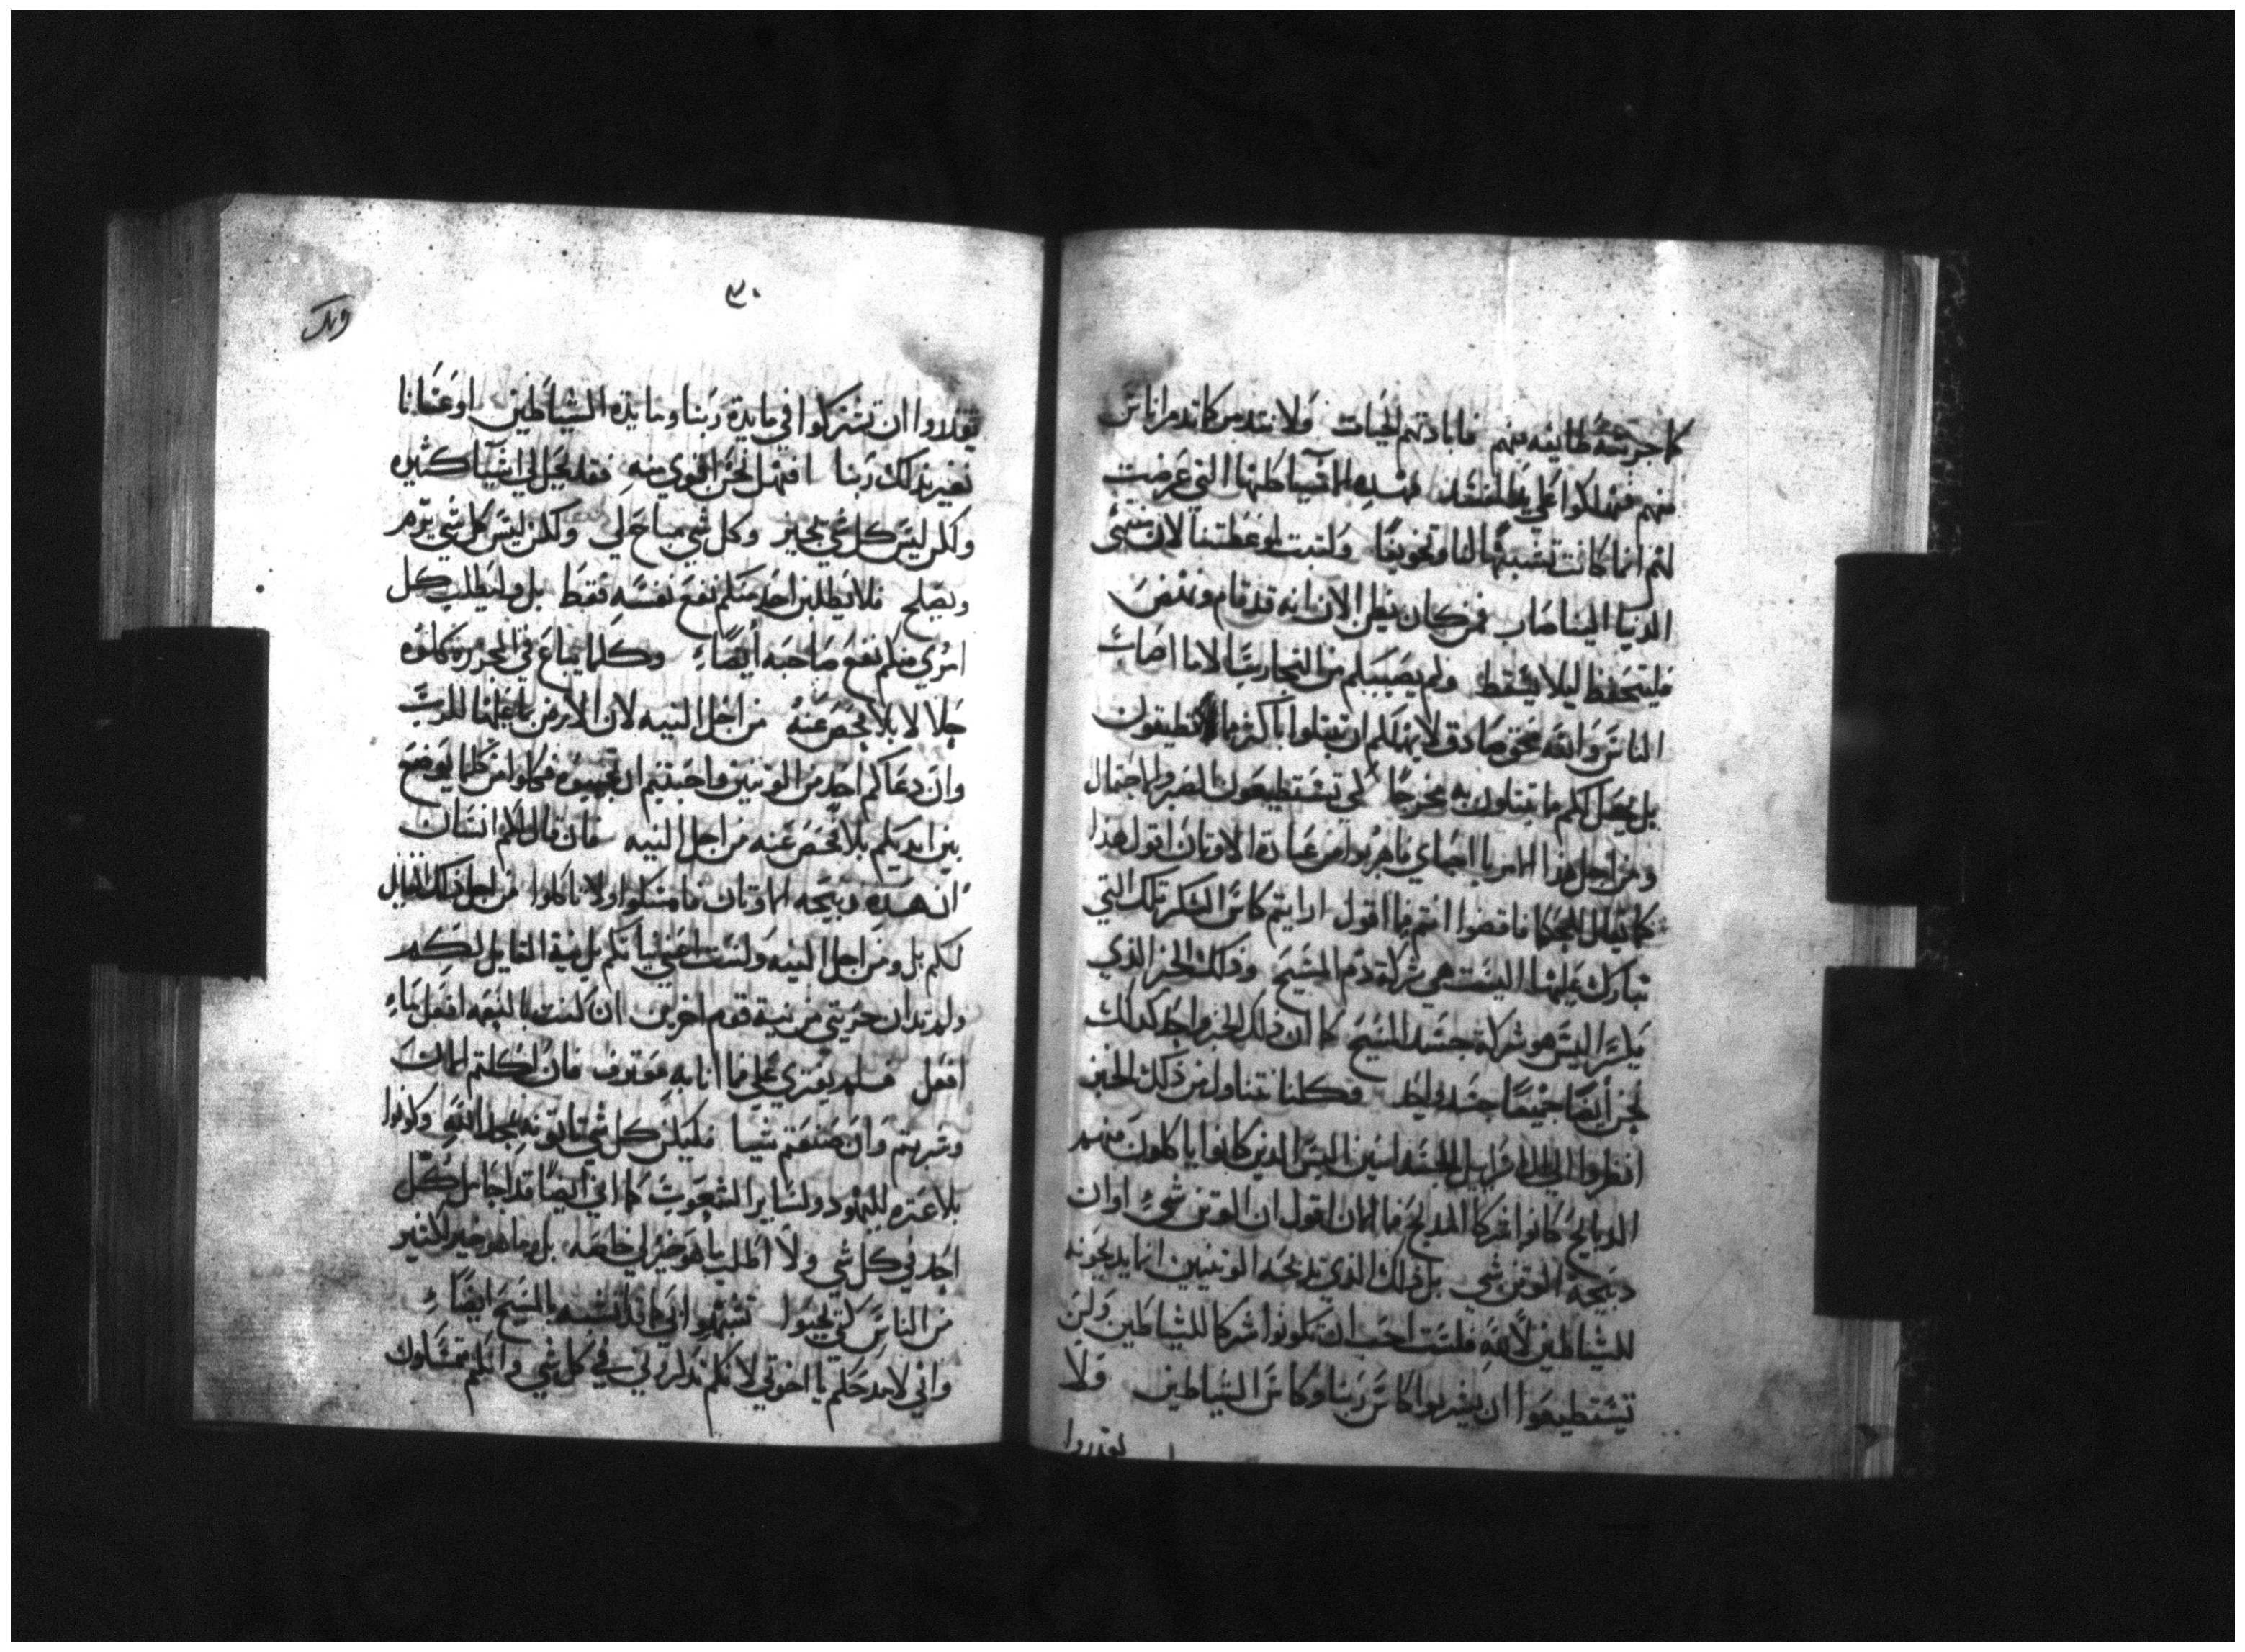 كما جربته طايفه منهم فابادتهم الحيات ولا نتدمر كما تدمر اناس
منهم فهلكوا على يد المفسد فهذه الاشيا كلها التي عرضت
لهم انما كانت تشبيها لنا وتخويفا وكتبت لموعظتنا لان منتهى
الدنيا الينا صار فمن كان يظن الان انه قد قام ونهض
فليتحفظ ليلا يسقط ولم يصيبكم من التجارب الا ما اصاب
الناس والله محق صادق لا يهملكم ان تبتلوا باكثر مما تطيقون
بل يجعل لكم ما تبتلون به مخرجا لكي تستطيعون الصبر والاحتمال
ومن اجل هذا الامر يا احباي فاهربوا من عبادة الاوثان اقول هذا
كما يقال للحكما فاقضوا انتم فيما اقول ارايتم كاس الشكر تلك التي
نبارك عليها اليست هي شركة دم المسيح وذلك الخبز الذي
يكسر اليس هو شركة جسد المسيح كما ان ذلك الخبز واحد كذلك
نحن ايضا جميعا جسد واحد وكلنا نتناول من ذلك الخبز
انظروا الى ال اسراييل الجسدانيين اليس الذين كانوا ياكلون منهم
الدبايح كانوا شركا المدبح فما الان اقول ان الوتن شي او ان
دبيحة الوتن شي بل ذلك الذي تدبحه الوتنيين انما يدبحونه
للشياطين لا لله فلست احب ان تكونوا شركا للشياطين ولن
تستطيعوا ان تشربوا كاس ربنا وكاس الشياطين ولا
تقدروا
٣٠
تقدروا ان تشتركوا في مايدة ربنا ومايدة الشياطين او عسانا
نغير بذلك ربنا افهل نحن اقوى منه فقد يحل لي اشيا كثيره
ولكن ليس كل شي يجيز وكل شي مباح لي ولكن ليس كل شي يرم
ويصلح فلا يطلبن احد منكم نفع نفسه فقط بل وليطلب كل
امري منكم نفع صاحبه ايضا وكلما يباع في المجزرة فكلوه
حلالا بلا فحص عنه من اجل النيه لان الارض بما عليها للرب
وان دعاكم احد من الوتنيين واحببتم ان تجيبوه فكلوا من كلما يوضع
بين ايديكم بلا فحص عنه من اجل النيه فان قال لكم انسان
ان هذه دبيحه الاوتان فامسكوا ولا تاكلوا من اجل ذلك القايل
لكم بل ومن اجل النيه ولست اعني نياتكم بل نية القايل لكم
ولم تدان حريتي من نية قوم اخرين ان كنت بالنعمه افعل ما
افعل فلم يفتري علي فيما انا به معترف فان اكلتم الان
وشربتم وان صنعتم شيا فليكن كل شي تاتونه لمجد الله وكونوا
بلا عتره لليهود ولساير الشعوب كما اني ايضا قد اجامل كل
احد في كل شي ولا اطلب ما هو خير لي خاصه بل ما هو خير لكثير
من الناس لكي يحيوا تشبهوا بي كما قد اتشبه بالمسيح ايضا
واني لامدحكم يا اخوتي لانكم تذكروني في كل شي وانكم تمسكون